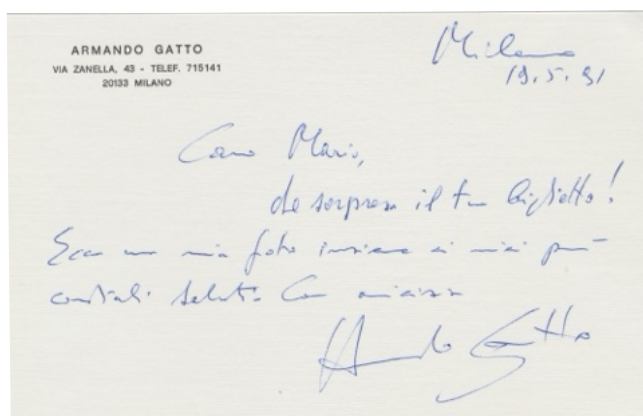 ARMANDO GATTO
VIA ZANELLA, 43 - TELEF. 715141
20133 MILANO
Milano
19.5.91
Caro Mario,
che sorpresa il tuo biglietto!
Ecco una mia foto insieme ai miei più
cordiali saluti. Con amicizia
Armando Gatto